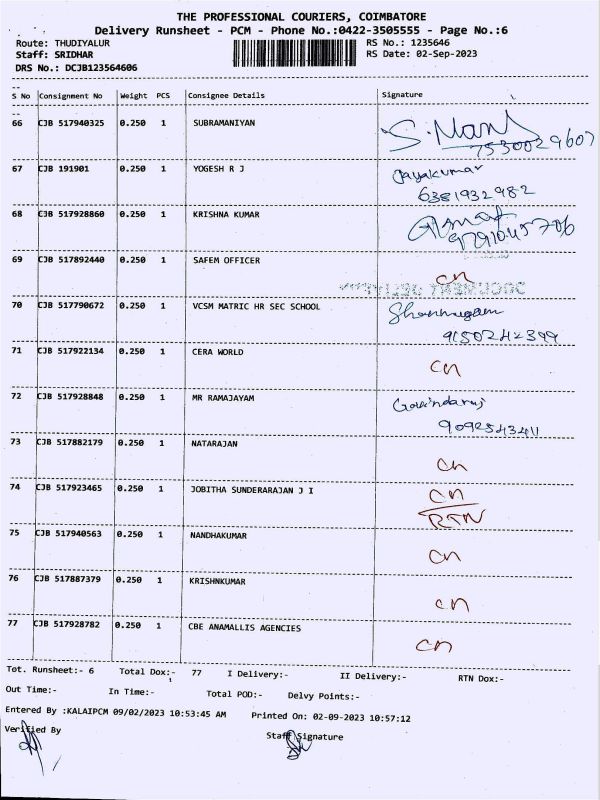 THE PROFESSIONAL COURIERS, COIMBATORE
Delivery Runsheet - PCM - Phone No.:0422-3505555 - Page No.:6
Route: THUDIYALUR RS No.: 1235646
Staff: SRIDHAR RS Date: 02-Sep-2023
DRS No.: DCJB123564606
S No Consignment No Weight PCS Consignee Details Signature
66 CJB 517940325 0.250 1 SUBRAMANIYAN S. Mani
7530029607
67 CJB 191901 0.250 1 YOGESH R J Jayakumar
6381932982
68 CJB 517928860 0.250 1 KRISHNA KUMAR
9791045706
69 CJB 517892440 0.250 1 SAFEM OFFICER cn
70 CJB 517790672 0.250 1 VCSM MATRIC HR SEC SCHOOL Shanmugam
9150242399
71 CJB 517922134 0.250 1 CERA WORLD cn
72 CJB 517928848 0.250 1 MR RAMAJAYAM Govindaraj
9092543411
73 CJB 517882179 0.250 1 NATARAJAN cn
74 CJB 517923465 0.250 1 JOBITHA SUNDERARAJAN J I cn
RTN
75 CJB 517940563 0.250 1 NANDHAKUMAR cn
76 CJB 517887379 0.250 1 KRISHNKUMAR cn
77 CJB 517928782 0.250 1 CBE ANAMALLIS AGENCIES cn
Tot. Runsheet:- 6 Total Dox:- 77 I Delivery:- II Delivery:- RTN Dox:-
Out Time:- In Time:- Total POD:- Delvy Points:-
Entered By :KALAIPCM 09/02/2023 10:53:45 AM Printed On: 02-09-2023 10:57:12
Verified By Staff Signature